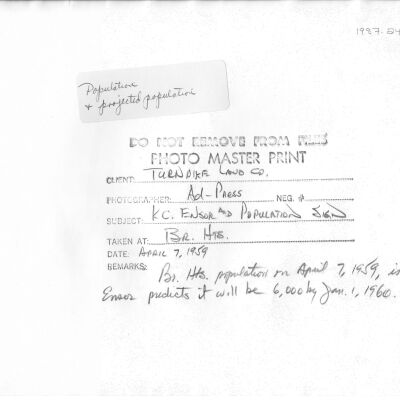 1997.24
Population
& projected population
DO NOT REMOVE FROM FILES
PHOTO MASTER PRINT
CLIENT: TURNPIKE LAND CO.
PHOTOGRAPHER: Ad-Press NEG. #
SUBJECT: K.C. ENSOR AND POPULATION SIGN
TAKEN AT: BR. HTS.
DATE: APRIL 7, 1959
REMARKS: Br. Hts. population on April 7, 1959, is
Ensor predicts it will be 6,000 by Jan. 1, 1960.